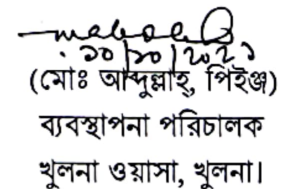 ২০/১০/২০২১
(মোঃ আব্দুল্লাহ্, পিইঞ্জ)
ব্যবস্থাপনা পরিচালক
খুলনা ওয়াসা, খুলনা।